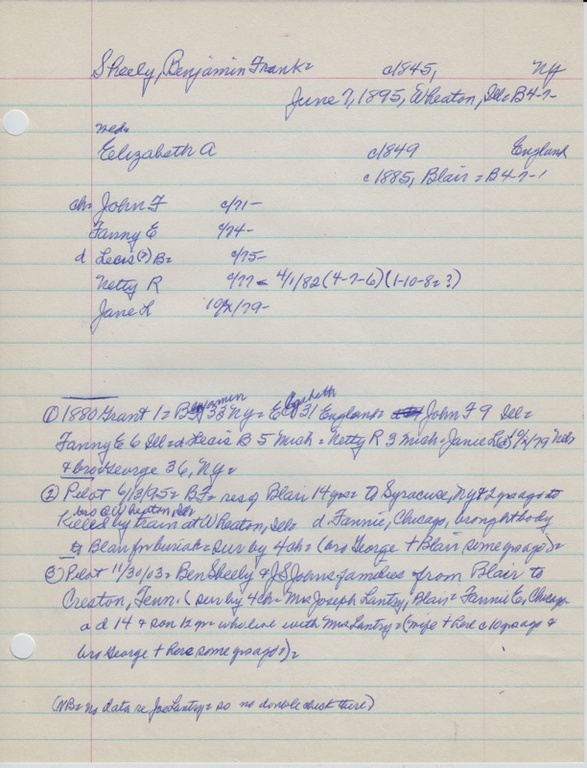 Sheely, Benjamin Frank= c1845, NY
June 7, 1895, Wheaton, Ill= B4-7-
Elizabeth A c1849 England
c1885, Blair = B4-7-1
ch= John F c/71-
Fanny E c/74-
d Lecis(?) B= c/75-
Netty R c/77 - 4/1/82 (4-7-6) (1-10-82?)
Jane L 10/2/79-
① 1880 Grant 1= Benjamin 33 NY= Elizabeth 31 England= John F 9 Ill=
Fanny E 6 Ill= Lecis B 5 Mich= Netty R 3 Mich= Janie L 10/2/79 Neb
& bro George 36, NY=
② Pilot 6/13/95= BF= res of Blair 14 yrs= to Syracuse, NY & 2 yrs ago to
bro @ Wheaton, Ill
Killed by train at Wheaton, Ill= d Fannie, Chicago, brought body
to Blair for burial= sur by 4 ch= (bro George + Blair some yrs ago)=
③ Pilot 11/30/03= Ben Sheely & JS Johns families from Blair to
Creston, Tenn. (sur by 4 ch= Mrs Joseph Lantry, Blair= Fannie E, Chicago
a d 14 & son 12 yr who live with Mrs Lantry= (wife + here c10 yrs ago &
bro George + here some yrs ago)=
(NB= no data re Joe Lantry= so no double check there)